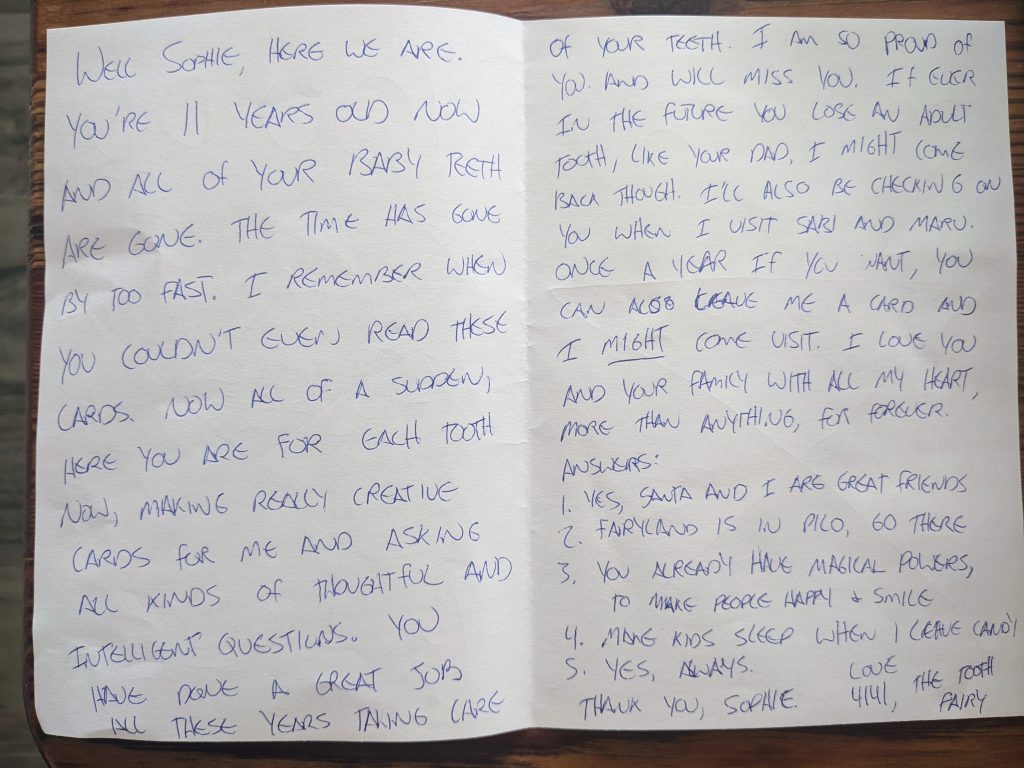 WELL SOPHIE, HERE WE ARE.
YOU'RE 11 YEARS OLD NOW
AND ALL OF YOUR BABY TEETH
ARE GONE. THE TIME HAS GONE
BY TOO FAST. I REMEMBER WHEN
YOU COULDN'T EVEN READ THESE
CARDS. NOW ALL OF A SUDDEN,
HERE YOU ARE FOR EACH TOOTH
NOW, MAKING REALLY CREATIVE
CARDS FOR ME AND ASKING
ALL KINDS OF THOUGHTFUL AND
INTELLIGENT QUESTIONS. YOU
HAVE DONE A GREAT JOB
ALL THESE YEARS TAKING CARE
OF YOUR TEETH. I AM SO PROUD OF
YOU. AND WILL MISS YOU. IF EVER
IN THE FUTURE YOU LOSE AN ADULT
TOOTH, LIKE YOUR DAD, I MIGHT COME
BACK THOUGH. I'LL ALSO BE CHECKING ON
YOU WHEN I VISIT SABI AND MARU.
ONCE A YEAR IF YOU WANT, YOU
CAN ALSO LEAVE ME A CARD AND
I MIGHT COME VISIT. I LOVE YOU
AND YOUR FAMILY WITH ALL MY HEART,
MORE THAN ANYTHING, FOR FOREVER.
ANSWERS:
1. YES, SANTA AND I ARE GREAT FRIENDS
2. FAIRYLAND IS IN PICO, GO THERE
3. YOU ALREADY HAVE MAGICAL POWERS,
TO MAKE PEOPLE HAPPY & SMILE
4. MAKE KIDS SLEEP WHEN I LEAVE CANDY
5. YES, ALWAYS.
THANK YOU, SOPHIE.
LOVE
4141, THE TOOTH
FAIRY